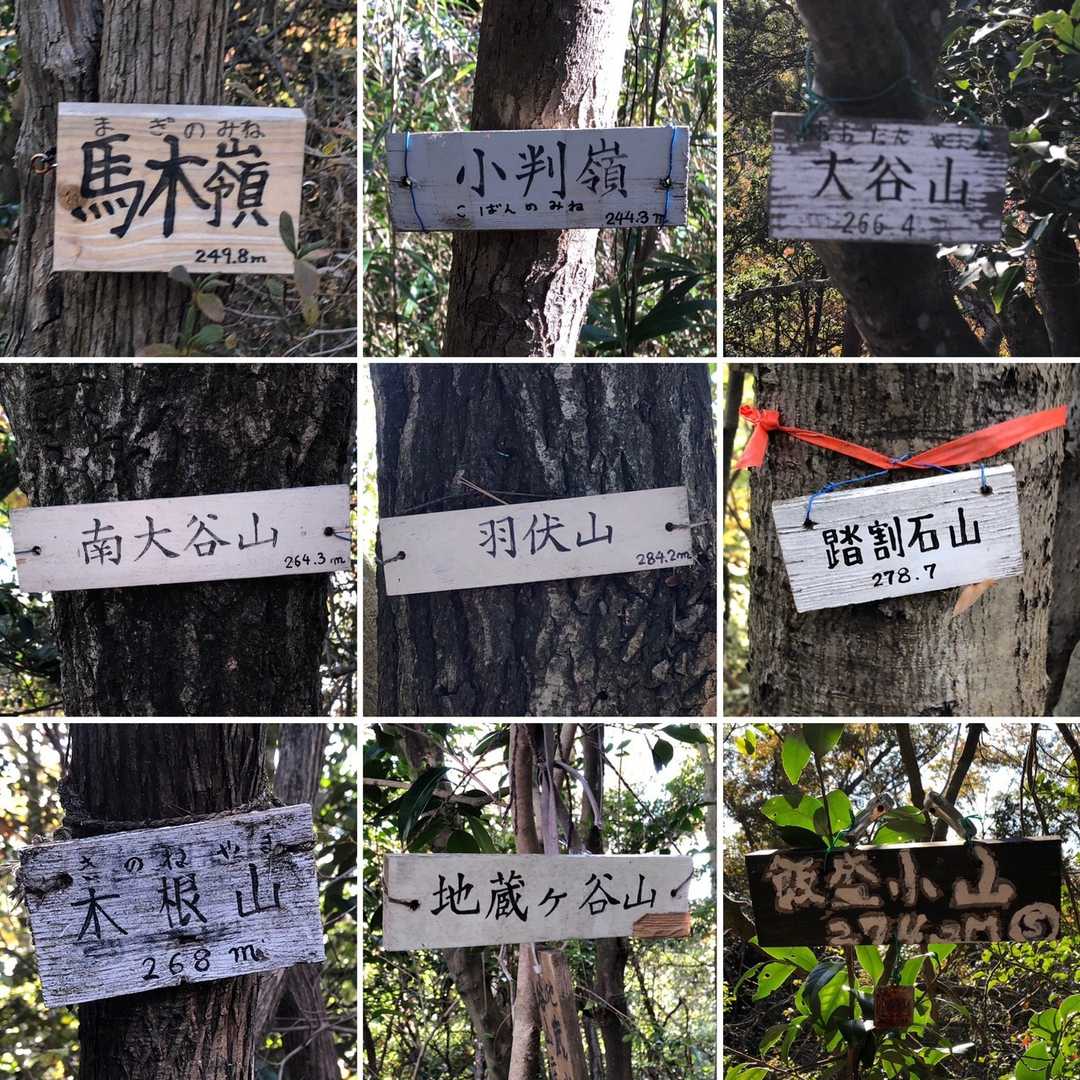 まぎのみね
馬木嶺
249.8m
小判嶺
こばんのみね
244.3m
おおたんやま
大谷山
266.4
南大谷山
264.3m
羽伏山
284.2m
踏割石山
278.7
きのねやま
木根山
268m
地蔵ヶ谷山
飯盛小山